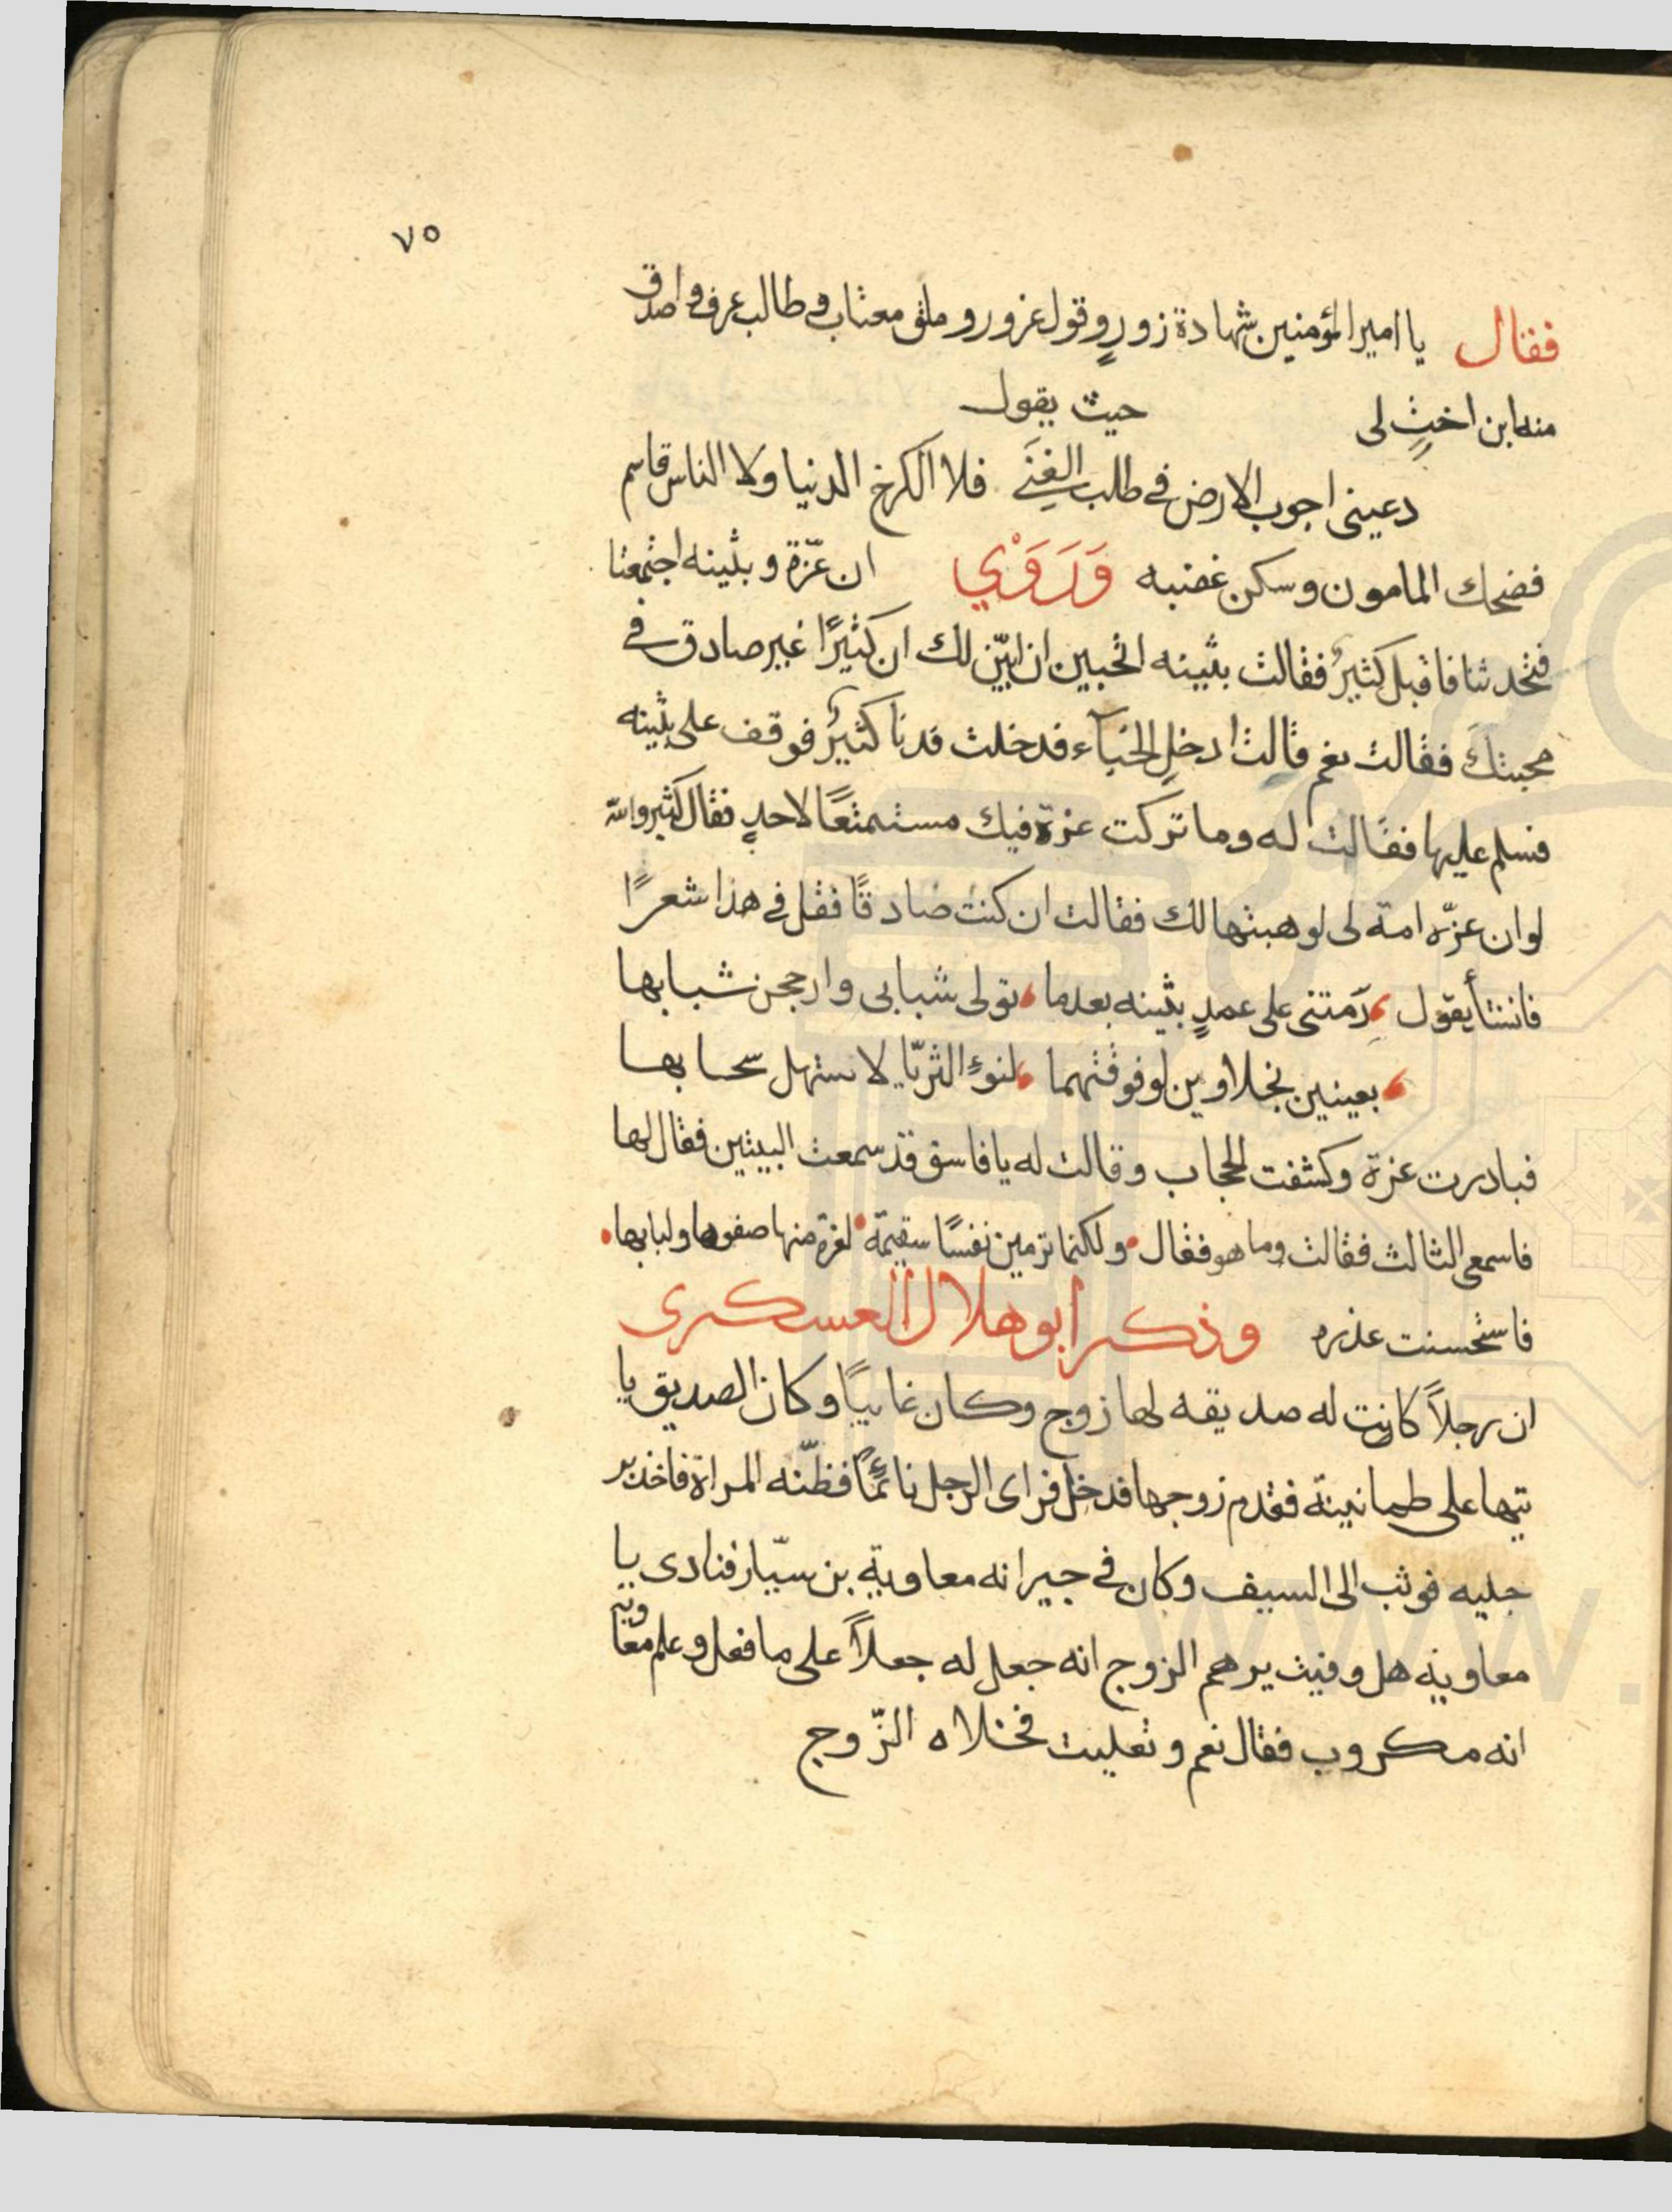 ٧٥
فقال يا امير المؤمنين شهادة زورٍ وقول غرور وملق معتاب وطالب عرف واصدق
منه ابن اختٍ لى حيث يقول
دعينى اجوب الارض فى طلب الغنَى فلا الكرخ الدنيا ولا الناس قاسم
فضحك المامون وسكن غضبه وَرَوَيْ ان عزّة وبثينه اجتمعتا
فتحدثتا فاقبل كثيرٌ فقالت بثينه اتحبين ان ابيّن لك ان كثيرًا غير صادق فى
محبتكَ فقالت نعم قالت ادخلِ الخبآء فدخلت فدنا كثيرٌ فوقف على بثينه
فسلم عليها فقالت له وما تركت عزة فيك مستمتعًا لاحدٍ فقال كثير والله
لو ان عزّه امة لى لوهبتها لك فقالت ان كنت صادقًا فقل فى هذا شعرًا
فانشأ يقول رَمتنى على عمدٍ بثينه بعدما تولى شبابى وارجحن شبابها
بعينين نجلاوين لو فوقتهما لنوءِ الثريّا لاستهل سحابها
فبادرت عزة وكشفت الحجاب وقالت له يا فاسق قد سمعت البيتين فقال لها
فاسمعى الثالث فقالت وما هو فقال ولكنما ترمين نفسًا سقيمة لعزة منها صفوها ولبابها
فاستحسنت عذره وذكر ابو هلال العسكرى
ان رجلاً كانت له صديقه لها زوج وكان غايبًا وكان الصديق يا
تيها على طمانينة فقدم زوجها فدخل فراى الرجل نائمًا فظنّه المراة فاخذ بر
جليه فوثب الى السيف وكان فى جيرانه معاوية بن سيّار فنادى يا
معاويه هل وفيت يرهم الزوج انه جعل له جعلاً على ما فعل وعلم معاويه
انه مكروب فقال نعم وتعليت فخلاه الزّوج